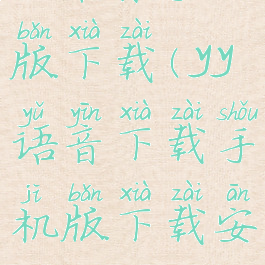 bǎn xià zài
版下载(yy
yǔ yīn xià zài shǒu
语音下载手
jī bǎn xià zài ān
机版下载安